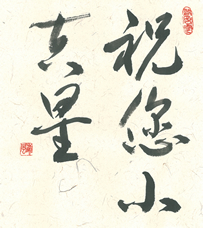 祝您小
吉星